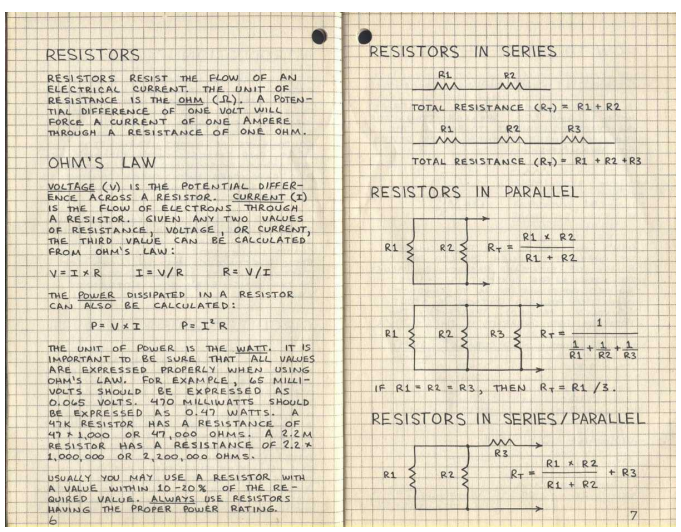 RESISTORS
RESISTORS RESIST THE FLOW OF AN
ELECTRICAL CURRENT. THE UNIT OF
RESISTANCE IS THE OHM (Ω). A POTEN-
TIAL DIFFERENCE OF ONE VOLT WILL
FORCE A CURRENT OF ONE AMPERE
THROUGH A RESISTANCE OF ONE OHM.
OHM'S LAW
VOLTAGE (V) IS THE POTENTIAL DIFFER-
ENCE ACROSS A RESISTOR. CURRENT (I)
IS THE FLOW OF ELECTRONS THROUGH
A RESISTOR. GIVEN ANY TWO VALUES
OF RESISTANCE, VOLTAGE, OR CURRENT,
THE THIRD VALUE CAN BE CALCULATED
FROM OHM'S LAW:
V = I × R I = V/R R = V/I
THE POWER DISSIPATED IN A RESISTOR
CAN ALSO BE CALCULATED:
P = V × I P = I² R
THE UNIT OF POWER IS THE WATT. IT IS
IMPORTANT TO BE SURE THAT ALL VALUES
ARE EXPRESSED PROPERLY WHEN USING
OHM'S LAW. FOR EXAMPLE, 65 MILLI-
VOLTS SHOULD BE EXPRESSED AS
0.065 VOLTS. 470 MILLIWATTS SHOULD
BE EXPRESSED AS 0.47 WATTS. A
47K RESISTOR HAS A RESISTANCE OF
47 × 1,000 OR 47,000 OHMS. A 2.2M
RESISTOR HAS A RESISTANCE OF 2.2 ×
1,000,000 OR 2,200,000 OHMS.
USUALLY YOU MAY USE A RESISTOR WITH
A VALUE WITHIN 10-20% OF THE RE-
QUIRED VALUE. ALWAYS USE RESISTORS
HAVING THE PROPER POWER RATING.
6
RESISTORS IN SERIES
R1 R2
TOTAL RESISTANCE (RT) = R1 + R2
R1 R2 R3
TOTAL RESISTANCE (RT) = R1 + R2 + R3
RESISTORS IN PARALLEL
R1 × R2
R1 R2 RT =
R1 + R2
1
R1 R2 R3 RT =
1/R1 + 1/R2 + 1/R3
IF R1 = R2 = R3, THEN RT = R1 /3.
RESISTORS IN SERIES/PARALLEL
R3
R1 × R2
R1 R2 RT = + R3
R1 + R2
7